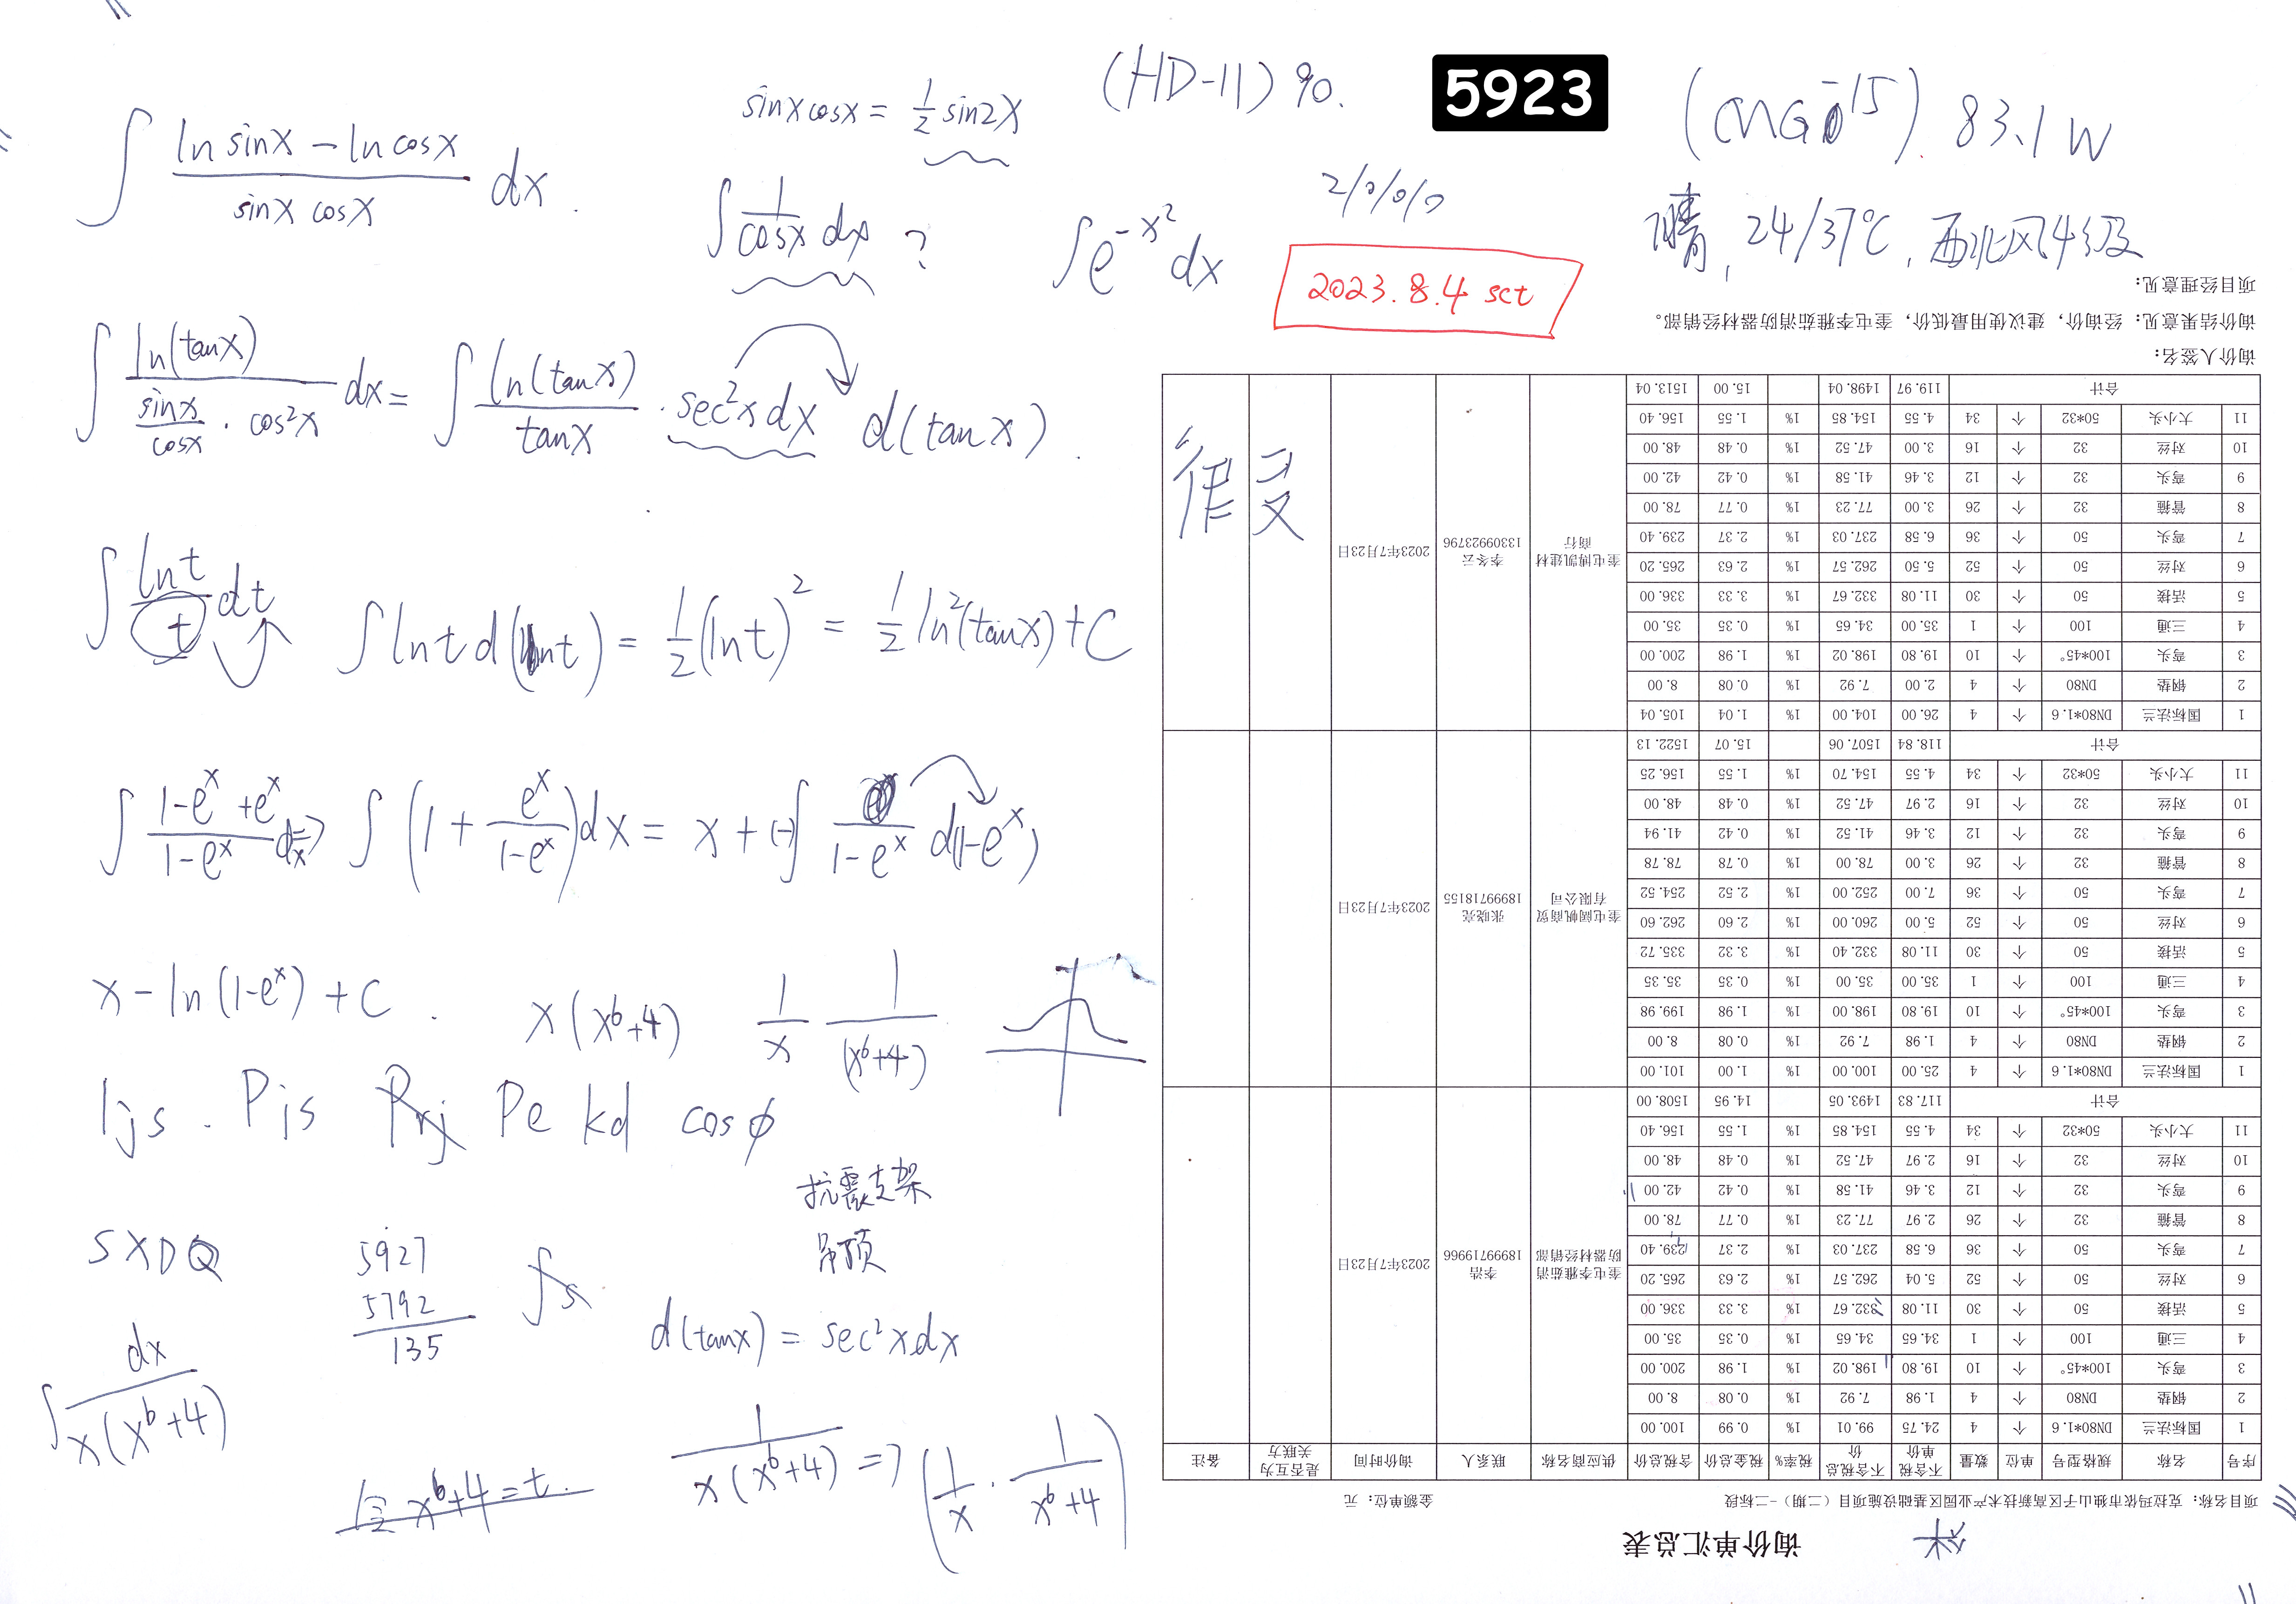 sinxcosx = 1/2 sin2x
(HD-11) 90.
5923
(CNG-15). 83.1W
∫ (ln sinx − ln cosx)/(sinx cosx) dx.
∫ 1/cosx dx ?
∫ e^(-x²) dx
2/0/0/0
晴, 24/37℃, 西北风4级
2023.8.4 sct
∫ ln(tanx)/(sinx/cosx · cos²x) dx = ∫ ln(tanx)/tanx · sec²x dx d(tanx).
∫ lnt/t dt ∫ lnt d(lnt) = 1/2 (lnt)² = 1/2 ln²(tanx) + C
∫ (1-e^x+e^x)/(1-e^x) dx ⇒ ∫ (1 + e^x/(1-e^x)) dx = x + (-)∫ /(1-e^x) d(1-e^x)
x − ln(1-e^x) + C.
x(x⁶+4) 1/x 1/(x⁶+4)
Ijs . Pjs Prj Pe kd cosφ
抗震支架
吊顶
SXDQ
5927
5792
135
∫s
d(tanx) = sec²xdx
∫ dx/(x(x⁶+4))
令 x⁶+4=t.
1/(x(x⁶+4)) ⇒ (1/x · 1/(x⁶+4))
作废
询价单汇总表
项目名称：克拉玛依市独山子区高新技术产业园区基础设施项目（二期）-二标段 金额单位：元
序号 名称 规格型号 单位 数量 不含税单价 不含税总价 税率% 税金总价 含税总价 供应商名称 联系人 询价时间 是否互为关联方 备注
1 国标法兰 DN80*1.6 个 4 24.75 99.01 1% 0.99 100.00
2 钢垫 DN80 个 4 1.98 7.92 1% 0.08 8.00
3 弯头 100*45° 个 10 19.80 198.02 1% 1.98 200.00
4 三通 100 个 1 34.65 34.65 1% 0.35 35.00
5 活接 50 个 30 11.08 332.67 1% 3.33 336.00
6 对丝 50 个 52 5.04 262.57 1% 2.63 265.20
7 弯头 50 个 36 6.58 237.03 1% 2.37 239.40
8 管箍 32 个 26 2.97 77.23 1% 0.77 78.00
9 弯头 32 个 12 3.46 41.58 1% 0.42 42.00
10 对丝 32 个 16 2.97 47.52 1% 0.48 48.00
11 大小头 50*32 个 34 4.55 154.85 1% 1.55 156.40
奎屯李雅茹消防器材经销部 李浩 18999719966 2023年7月23日
合计 117.83 1493.05 14.95 1508.00
1 国标法兰 DN80*1.6 个 4 25.00 100.00 1% 1.00 101.00
2 钢垫 DN80 个 4 1.98 7.92 1% 0.08 8.00
3 弯头 100*45° 个 10 19.80 198.00 1% 1.98 199.98
4 三通 100 个 1 35.00 35.00 1% 0.35 35.35
5 活接 50 个 30 11.08 332.40 1% 3.32 335.72
6 对丝 50 个 52 5.00 260.00 1% 2.60 262.60
7 弯头 50 个 36 7.00 252.00 1% 2.52 254.52
8 管箍 32 个 26 3.00 78.00 1% 0.78 78.78
9 弯头 32 个 12 3.46 41.52 1% 0.42 41.94
10 对丝 32 个 16 2.97 47.52 1% 0.48 48.00
11 大小头 50*32 个 34 4.55 154.70 1% 1.55 156.25
奎屯阔帆商贸有限公司 张晓亮 18999718155 2023年7月23日
合计 118.84 1507.06 15.07 1522.13
1 国标法兰 DN80*1.6 个 4 26.00 104.00 1% 1.04 105.04
2 钢垫 DN80 个 4 2.00 7.92 1% 0.08 8.00
3 弯头 100*45° 个 10 19.80 198.02 1% 1.98 200.00
4 三通 100 个 1 35.00 34.65 1% 0.35 35.00
5 活接 50 个 30 11.08 332.67 1% 3.33 336.00
6 对丝 50 个 52 5.50 262.57 1% 2.63 265.20
7 弯头 50 个 36 6.58 237.03 1% 2.37 239.40
8 管箍 32 个 26 3.00 77.23 1% 0.77 78.00
9 弯头 32 个 12 3.46 41.58 1% 0.42 42.00
10 对丝 32 个 16 3.00 47.52 1% 0.48 48.00
11 大小头 50*32 个 34 4.55 154.85 1% 1.55 156.40
奎屯博凯建材商行 李冬云 13309923796 2023年7月23日
合计 119.97 1498.04 15.00 1513.04
询价人签名：
询价结果意见：经询价，建议使用最低价，奎屯李雅茹消防器材经销部。
项目经理意见：